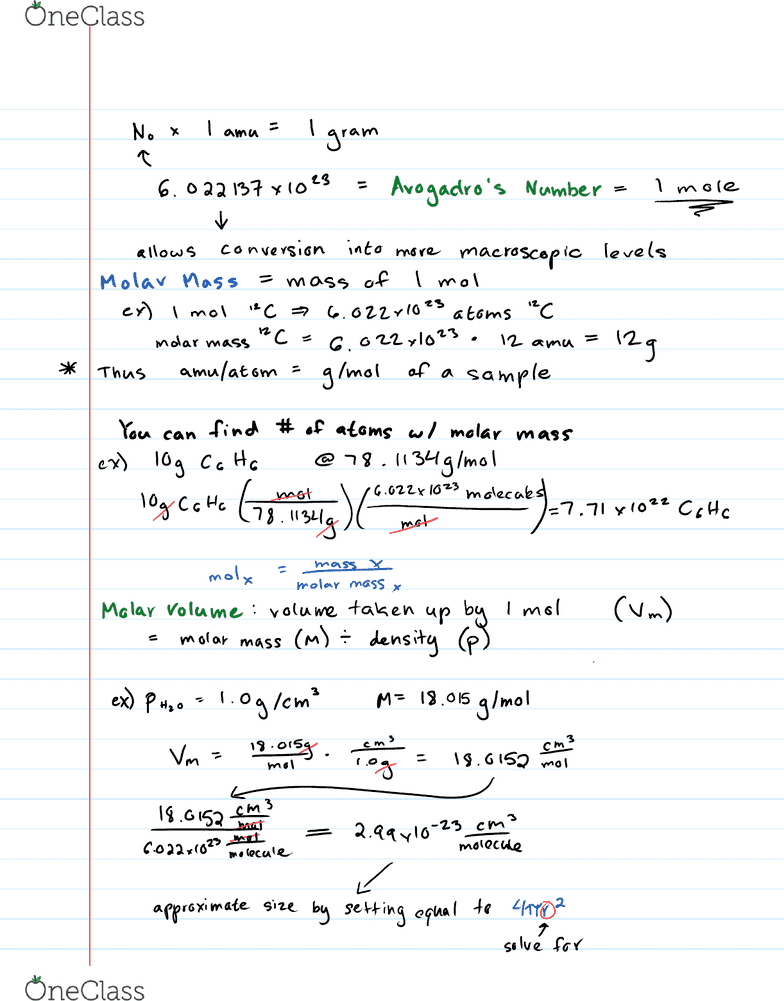 OneClass
N₀ × 1 amu = 1 gram
↑
6.022137 × 10²³ = Avogadro's Number = 1 mole
↓
allows conversion into more macroscopic levels
Molar Mass = mass of 1 mol
ex) 1 mol ¹²C ⇒ 6.022×10²³ atoms ¹²C
molar mass ¹²C = 6.022×10²³ · 12 amu = 12g
* Thus amu/atom = g/mol of a sample
You can find # of atoms w/ molar mass
ex) 10g C₆H₆ @ 78.1134g/mol
10g C₆H₆ (mol / 78.1134g)(6.022×10²³ molecules / mol) = 7.71 × 10²² C₆H₆
mol x = mass x / molar mass x
Molar Volume : volume taken up by 1 mol (Vm)
= molar mass (M) ÷ density (ρ)
ex) ρ H₂O = 1.0g/cm³ M = 18.015 g/mol
Vm = 18.015g / mol · cm³ / 1.0g = 18.0152 cm³ / mol
18.0152 cm³ / mol / 6.022×10²³ mol / molecule = 2.99×10⁻²³ cm³ / molecule
approximate size by setting equal to 4πr²
↑
solve for
OneClass